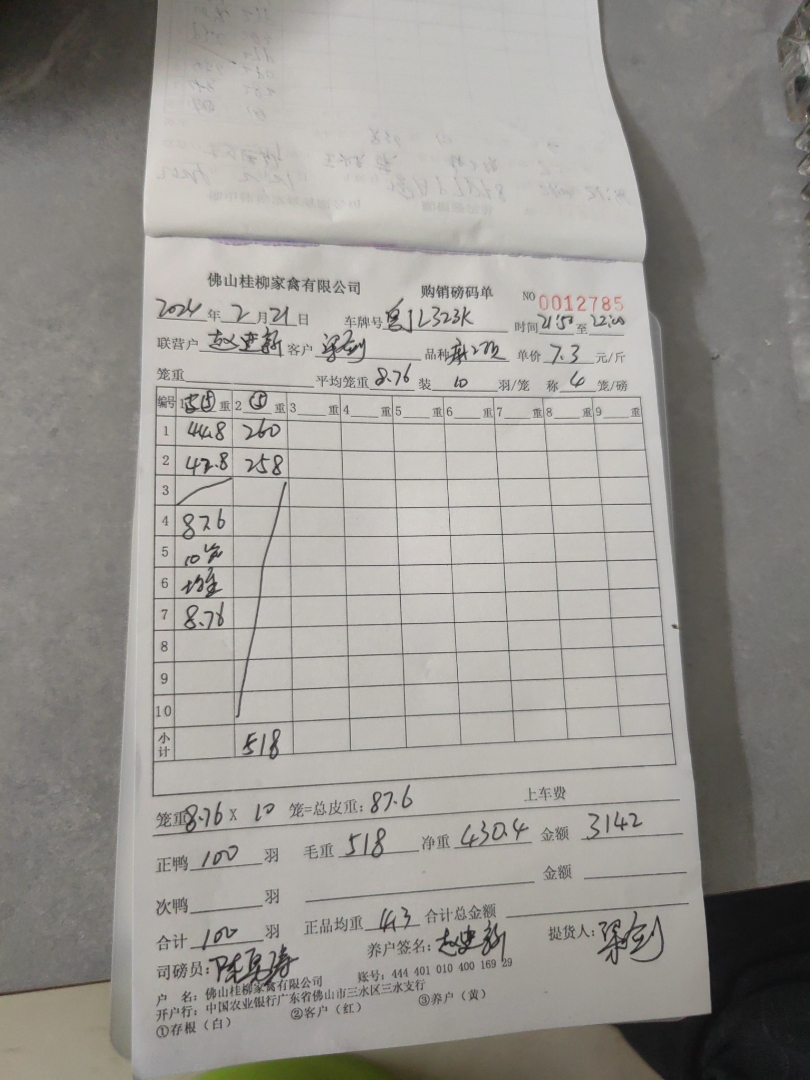 佛山桂柳家禽有限公司 购销磅码单 NO 0012785
2024年2月21日 车牌号 粤JL323K 时间21:50至22:00
联营户 赵史新 客户 梁剑 品种 单价 7.3 元/斤
笼重 平均笼重 8.76 装 10 羽/笼 称 4 笼/磅
编号 1 重 2 ⑤ 重 3 重 4 重 5 重 6 重 7 重 8 重 9 重
1 44.8 260
2 42.8 258
3
4 87.6
5 10笼
6 均重
7 8.76
8
9
10
小计 518
笼重8.76 X 10 笼=总皮重: 87.6 上车费
正鸭 100 羽 毛重 518 净重 430.4 金额 3142
次鸭 羽 金额
合计 100 羽 正品均重 4.3 合计总金额
司磅员: 养户签名: 赵史新 提货人: 梁剑
户 名: 佛山桂柳家禽有限公司 账号: 444 401 010 400 169 29
开户行: 中国农业银行广东省佛山市三水区三水支行
①存根(白) ②客户(红) ③养户(黄)